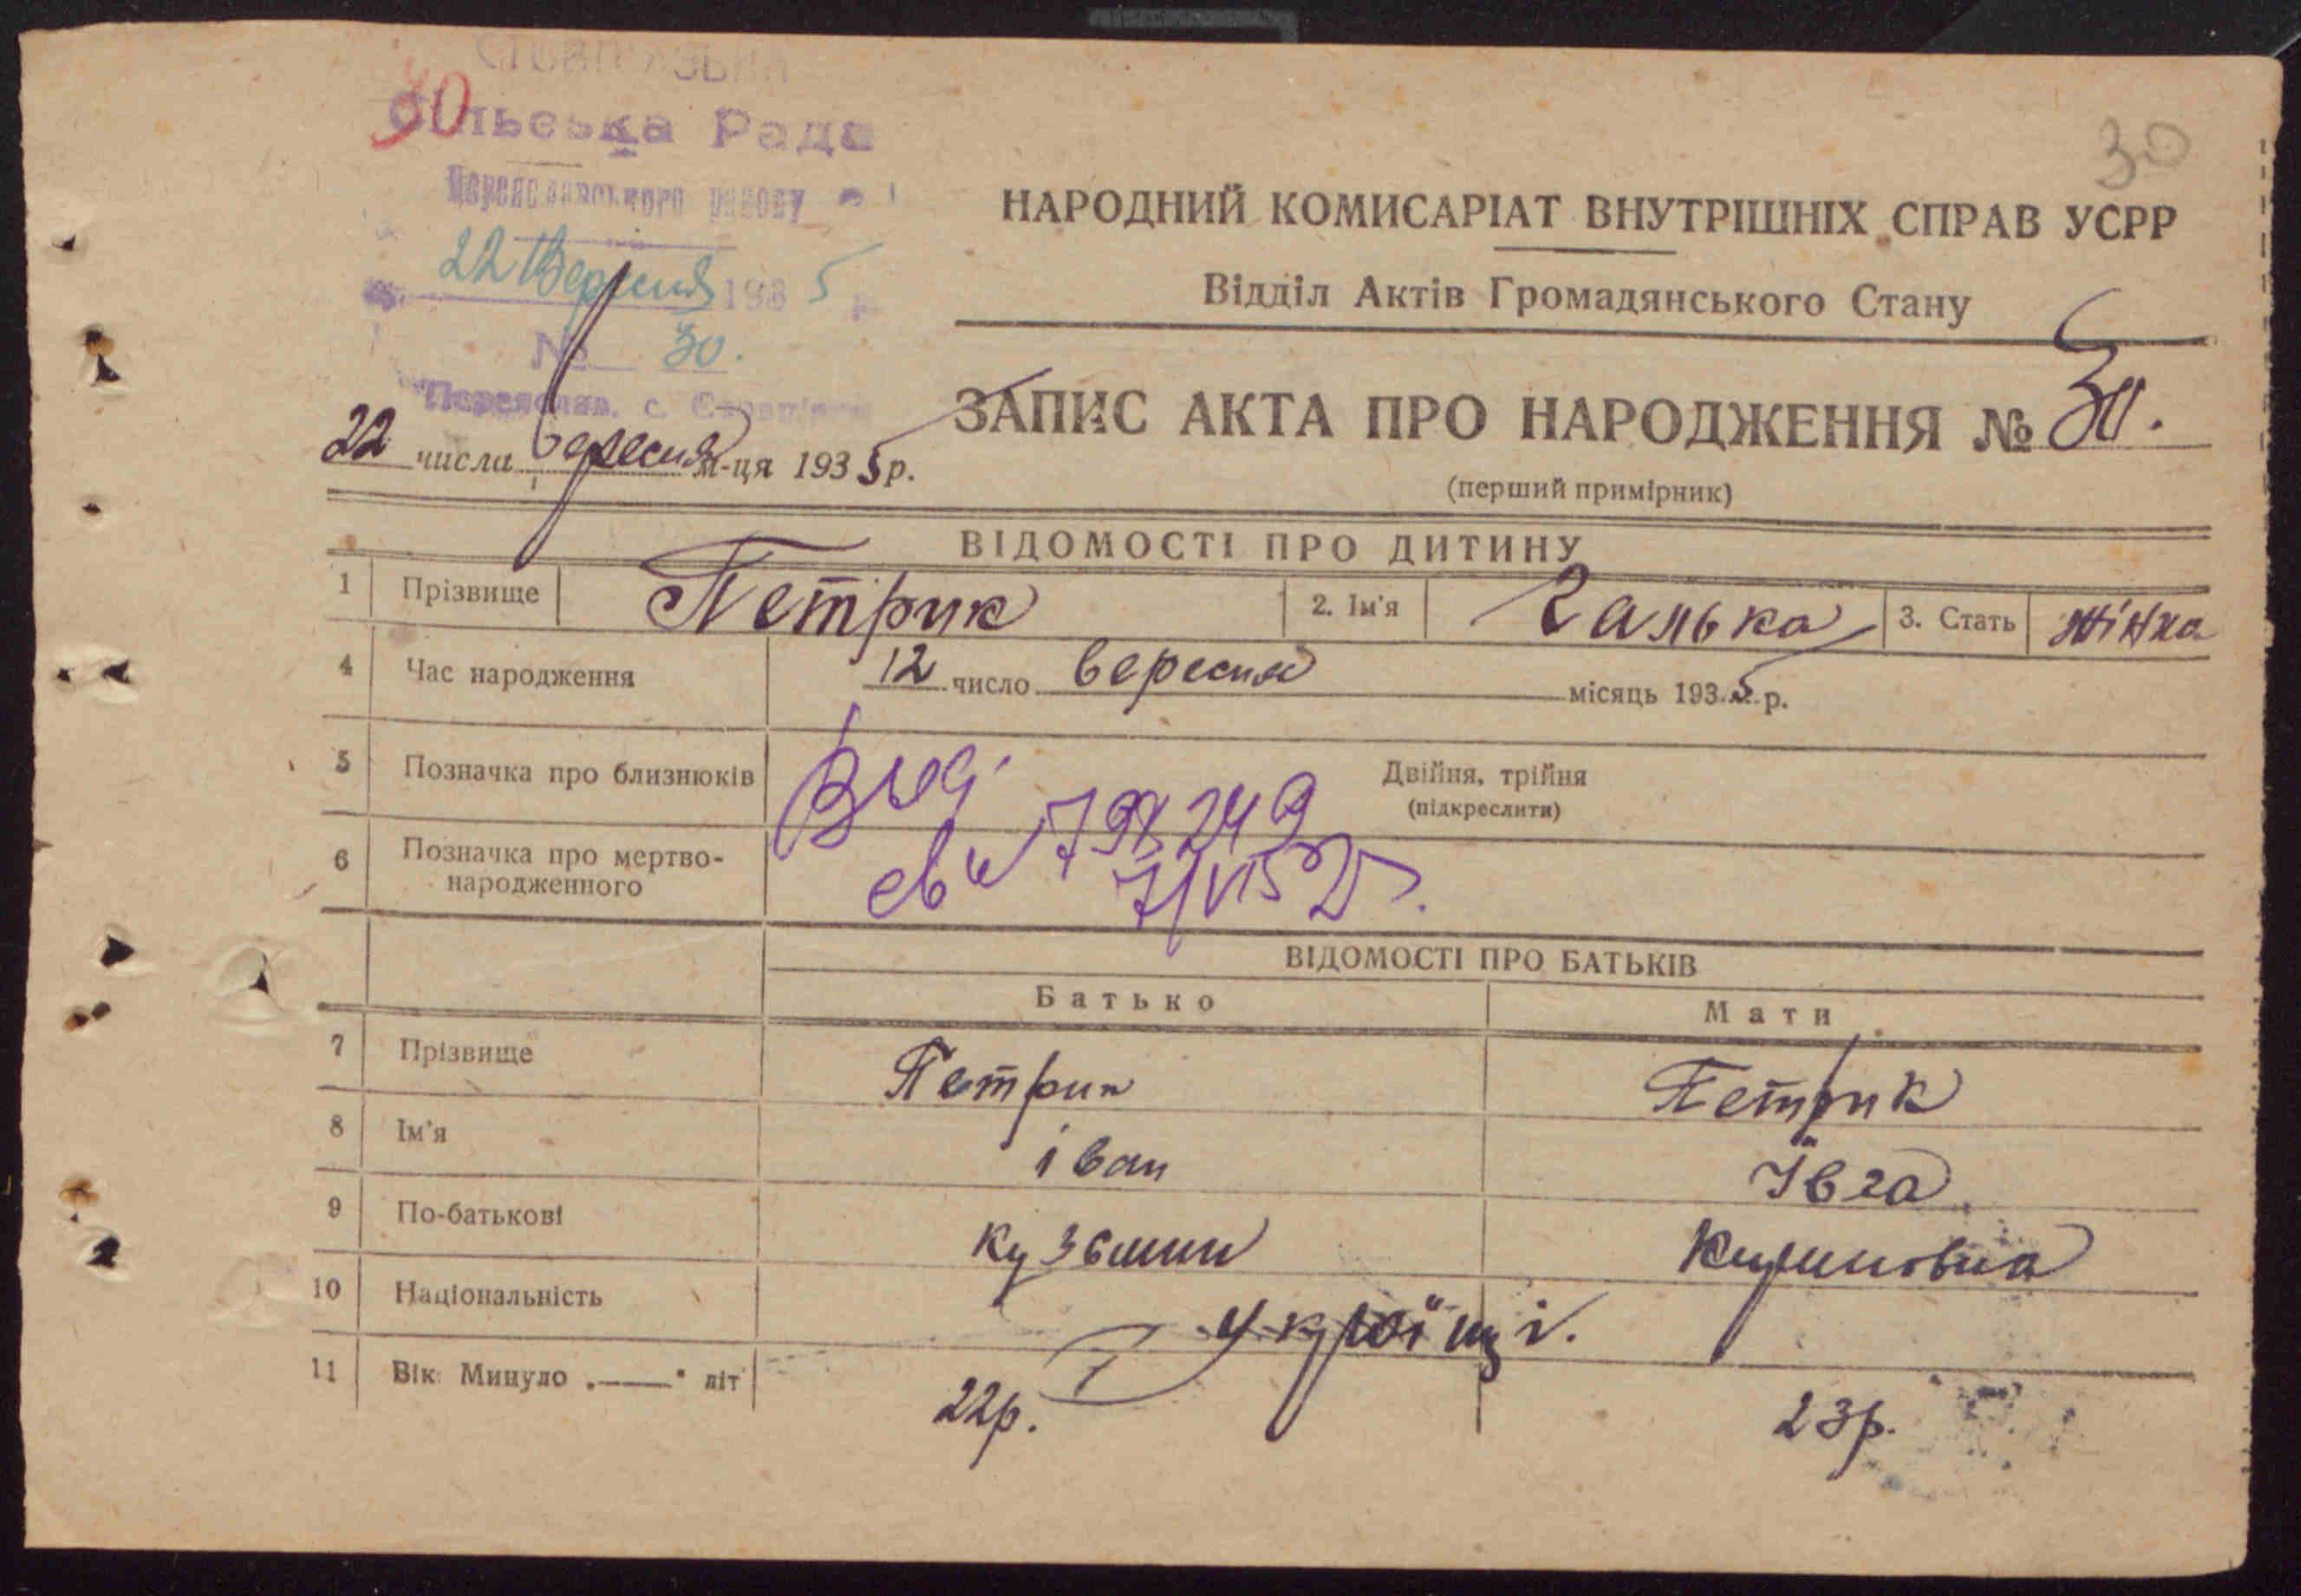 30
Сільська Рада
30
Переяславського району
НАРОДНИЙ КОМИСАРІАТ ВНУТРІШНІХ СПРАВ УСРР
22 Вересня 1935
Відділ Актів Громадянського Стану
№ 30.
ЗАПИС АКТА ПРО НАРОДЖЕННЯ № 30.
22 числа вересня м-ця 1935 р.
(перший примірник)
ВІДОМОСТІ ПРО ДИТИНУ
1 Прізвище Петрик 2. Ім'я Галька 3. Стать жінка
4 Час народження 12 число вересня місяць 1935 р.
5 Позначка про близнюків Двійня, трійня
(підкреслити)
6 Позначка про мертво-
народженного
798249
7/VI 52 г.
ВІДОМОСТІ ПРО БАТЬКІВ
Батько Мати
7 Прізвище Петрик Петрик
8 Ім'я іван Ївга
9 По-батькові кузьмин
10 Національність українці.
11 Вік: Минуло „——" літ 22р. 23р.